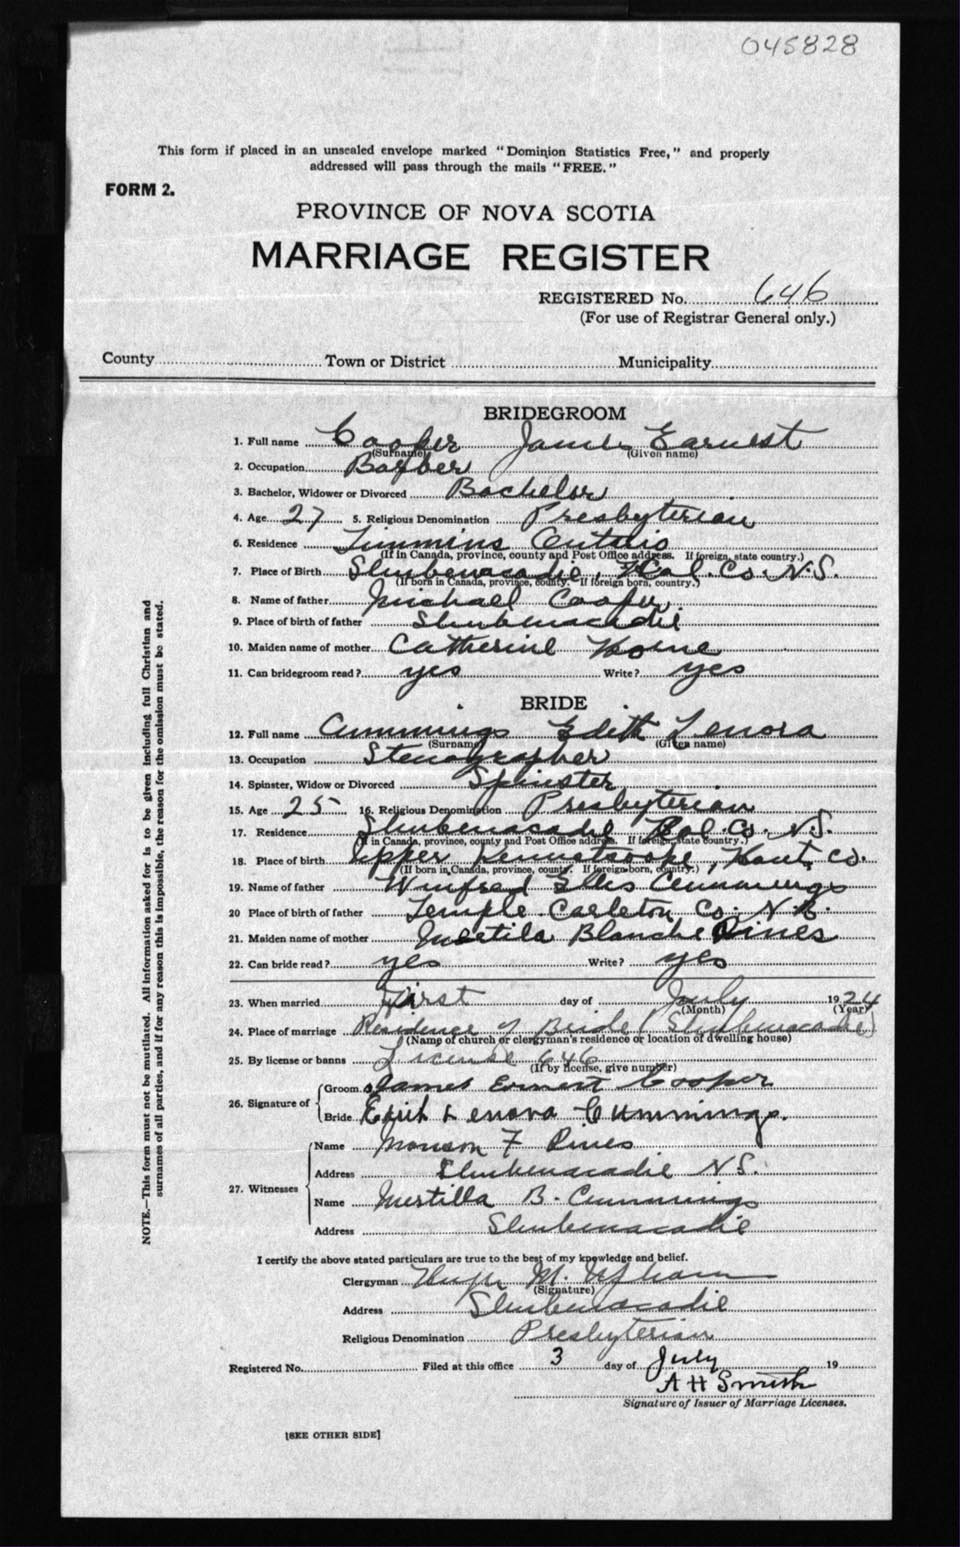 045828
This form if placed in an unsealed envelope marked "Dominion Statistics Free," and properly
addressed will pass through the mails "FREE."
FORM 2.
PROVINCE OF NOVA SCOTIA
MARRIAGE REGISTER
REGISTERED No. 646
(For use of Registrar General only.)
County Town or District Municipality
BRIDEGROOM
1. Full name Cooper James Earnest
(Surname) (Given name)
2. Occupation Barber
3. Bachelor, Widower or Divorced Bachelor
4. Age 27 5. Religious Denomination Presbyterian
6. Residence Timmins Ontario
(If in Canada, province, county and Post Office address. If foreign, state country.)
7. Place of Birth Shubenacadie, Hal. Co. N.S.
(If born in Canada, province, county. If foreign born, country.)
8. Name of father Michael Cooper
9. Place of birth of father Shubenacadie
10. Maiden name of mother Catherine
11. Can bridegroom read? yes Write? yes
BRIDE
12. Full name Cummings Edith Lenora
(Surname) (Given name)
13. Occupation Stenographer
14. Spinster, Widow or Divorced Spinster
15. Age 25 16. Religious Denomination Presbyterian
17. Residence Shubenacadie Hal. Co. N.S.
(If in Canada, province, county and Post Office address. If foreign, state country.)
18. Place of birth Upper Kennetcook, Hants Co.
(If born in Canada, province, county. If foreign born, country.)
19. Name of father Winfred Cummings
20 Place of birth of father Temple Carleton Co. N.B.
21. Maiden name of mother Blanche Pines
22. Can bride read? yes Write? yes
23. When married First day of July 1924
(Month) (Year)
24. Place of marriage Residence of Bride (Shubenacadie)
(Name of church or clergyman's residence or location of dwelling house)
25. By license or banns License 646
(If by license, give number)
26. Signature of Groom James Ernest Cooper
Bride Edith Lenora Cummings.
27. Witnesses Name F Pines
Address Shubenacadie N.S.
Name Mertilla B. Cummings
Address Shubenacadie
I certify the above stated particulars are true to the best of my knowledge and belief.
Clergyman Hugh M. Upham
(Signature)
Address Shubenacadie
Religious Denomination Presbyterian
Registered No. Filed at this office 3 day of July 19
A H Smith
Signature of Issuer of Marriage Licenses.
[SEE OTHER SIDE]
NOTE.—This form must not be mutilated. All information asked for is to be given including full Christian and
surnames of all parties, and if for any reason this is impossible, the reason for the omission must be stated.